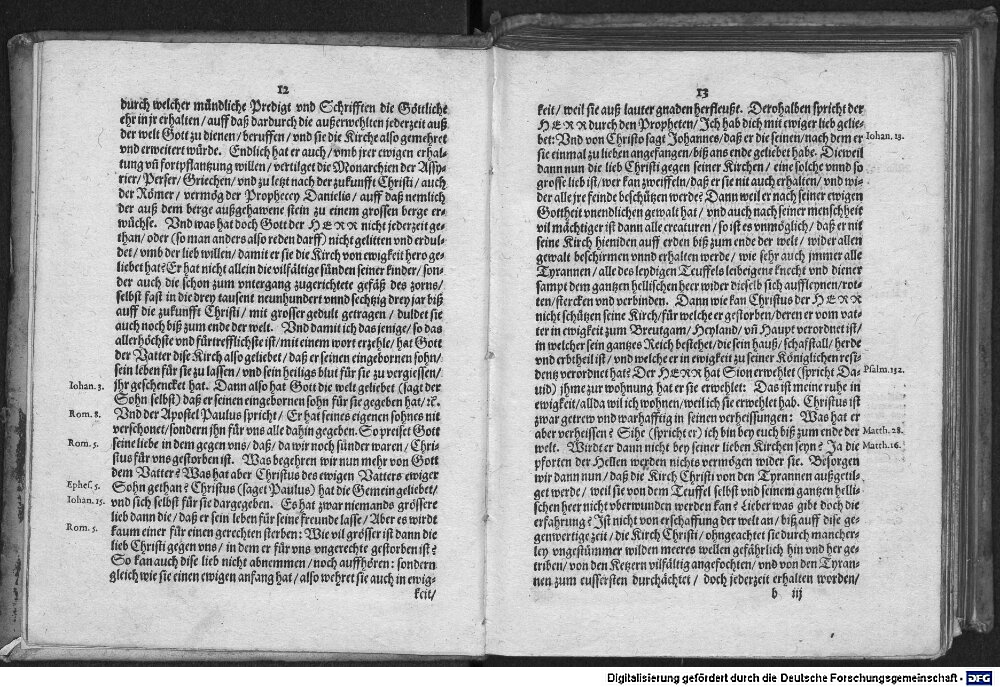 12
durch welcher mündliche Predigt vnd Schrifften die Göttliche
ehr in jr erhalten / auff daß dardurch die außerwehlten jederzeit auß
der welt Gott zu dienen / beruffen / vnd sie die Kirche also gemehret
vnd erweitert würde. Endlich hat er auch / vmb jrer ewigen erhal-
tung vñ fortpflantzung willen / vertilget die Monarchien der Assy-
rier / Perser / Griechen / vnd zu letzt nach der zukunfft Christi / auch
der Römer / vermög der Prophecey Danielis / auff daß nemlich
der auß dem berge außgehawene stein zu einem grossen berge er-
wüchse. Vnd was hat doch Gott der HERR nicht jederzeit ge-
than / oder (so man anders also reden darff) nicht gelitten vnd erdul-
det / vmb der lieb willen / damit er sie die Kirch von ewigkeit hero ge-
liebet hat? Er hat nicht allein die vilfältige sünden seiner kinder / son-
der auch die schon zum vntergang zugerichtete gefäß des zorns /
selbst fast in die drey tausent neunhundert vnnd sechtzig drey jar biß
auff die zukunfft Christi / mit grosser gedult getragen / duldet sie
auch noch biß zum ende der welt. Vnd damit ich das jenige / so das
allerhöchste vnd fürtrefflichste ist / mit einem wort erzehle / hat Gott
der Vatter dise Kirch also geliebet / daß er seinen eingebornen sohn /
sein leben für sie zu lassen / vnd sein heiligs blut für sie zu vergiessen /
Iohan. 3. jhr geschencket hat. Dann also hat Gott die welt geliebet (sagt der
Sohn selbst) daß er seinen eingebornen sohn für sie gegeben hat / ꝛc.
Rom. 8. Vnd der Apostel Paulus spricht / Er hat seines eigenen sohnes nit
verschonet / sondern jhn für vns alle dahin gegeben. So preiset Gott
Rom. 5. seine liebe in dem gegen vns / daß / da wir noch sünder waren / Chri-
stus für vns gestorben ist. Was begehren wir nun mehr von Gott
dem Vatter? Was hat aber Christus des ewigen Vatters ewiger
Ephes. 5. Sohn gethan? Christus (saget Paulus) hat die Gemein geliebet /
Iohan. 15. vnd sich selbst für sie dargegeben. Es hat zwar niemands grössere
lieb dann die / daß er sein leben für seine freunde lasse / Aber es wirdt
Rom. 5. kaum einer für einen gerechten sterben: Wie vil grösser ist dann die
lieb Christi gegen vns / in dem er für vns vngerechte gestorben ist?
So kan auch dise lieb nicht abnemmen / noch auffhören: sondern
gleich wie sie einen ewigen anfang hat / also wehret sie auch in ewig-
keit /
13
keit / weil sie auß lauter gnaden herfleußt. Derohalben spricht der
HERR durch den Propheten / Ich hab dich mit ewiger lieb gelie-
bet: Vnd von Christo sagt Johannes / daß er die seinen / nach dem er Iohan. 13.
sie einmal zu lieben angefangen / biß ans ende geliebet habe. Dieweil
dann nun die lieb Christi gegen seiner Kirchen / eine solche vnnd so
grosse lieb ist / wer kan zweiffeln / daß er sie nit auch erhalten / vnd wi-
der alle jre feinde beschützen werde? Dann weil er nach seiner ewigen
Gottheit vnendlichen gewalt hat / vnd auch nach seiner menschheit
vil mächtiger ist dann alle creaturen / so ist es vnmöglich / daß er nit
seine Kirch hieniden auff erden biß zum ende der welt / wider allen
gewalt beschirmen vnnd erhalten werde / wie sehr auch jmmer alle
Tyrannen / alle des leydigen Teuffels leibeigene knecht vnd diener
sampt dem gantzen hellischen heer wider dieselb sich auffleynen / rot-
ten / stercken vnd verbinden. Dann wie kan Christus der HERR
nicht schützen seine Kirch / für welche er gestorben / deren er vom vat-
ter in ewigkeit zum Breutgam / Heyland / vñ Haupt verordnet ist /
in welcher sein gantzes Reich bestehet / die sein hauß / schafstall / herde
vnd erbtheil ist / vnd welche er in ewigkeit zu seiner Königlichen resi-
dentz verordnet hat? Der HERR hat Sion erwehlet (spricht Da- Psalm. 132.
uid) jhme zur wohnung hat er sie erwehlet: Das ist meine ruhe in
ewigkeit / allda wil ich wohnen / weil ich sie erwehlet hab. Christus ist
zwar getrew vnd warhafftig in seinen verheissungen: Was hat er
aber verheissen? Sihe (spricht er) ich bin bey euch biß zum ende der Matth. 28.
welt. Wirdt er dann nicht bey seiner lieben Kirchen seyn? Ja die Matth. 16.
pforten der Hellen werden nichts vermögen wider sie. Besorgen
wir dann nun / daß die Kirch Christi von den Tyrannen außgeti-
get werde / weil sie von dem Teuffel selbst vnd seinem gantzen helli-
schen heer nicht vberwunden werden kan? Lieber was gibt doch die
erfahrung? Ist nicht von erschaffung der welt an / biß auff dise ge-
genwertige zeit / die Kirch Christi / ohngeachtet sie durch mancher-
ley vngestümmer wilden meeres wellen gefährlich hin vnd her ge-
triben / von den Ketzern vilfältig angefochten / vnd von den Tyran-
nen zum eussersten durchächtet / doch jederzeit erhalten worden /
b iij
Digitalisierung gefördert durch die Deutsche Forschungsgemeinschaft - DFG